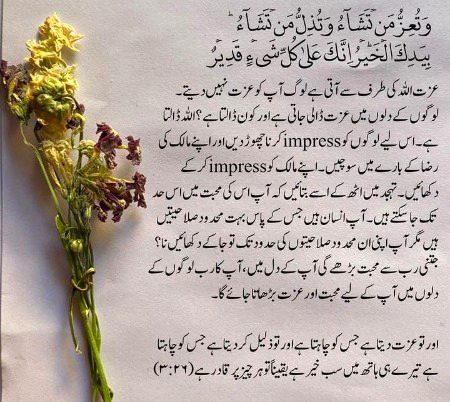 وَتُعِزُّ مَن تَشَآءُ وَتُذِلُّ مَن تَشَآءُ ۖ
بِيَدِكَ الْخَيْرُ إِنَّكَ عَلَىٰ كُلِّ شَىْءٍ قَدِيرٌ
عزت اللہ کی طرف سے آتی ہے لوگ آپ کو عزت نہیں دیتے۔
لوگوں کے دلوں میں عزت ڈالی جاتی ہے اور کون ڈالتا ہے؟ اللہ ڈالتا
ہے۔ اس لیے لوگوں کو impress کرنا چھوڑ دیں اور اپنے مالک کی
رضا کے بارے میں سوچیں۔ اپنے مالک کو impress کر کے
دکھائیں۔ تہجد میں اٹھ کے اسے بتائیں کہ آپ اس کی محبت میں اس حد
تک جا سکتے ہیں۔ آپ انسان ہیں جس کے پاس بہت محدود صلاحیتیں
ہیں مگر آپ اپنی ان محدود صلاحیتوں کی حدود تک تو جا کے دکھائیں نا؟
جتنی رب سے محبت بڑھے گی آپ کے دل میں، آپ کا رب لوگوں کے
دلوں میں آپ کے لیے محبت اور عزت بڑھاتا جائے گا۔
اور تو عزت دیتا ہے جس کو چاہتا ہے اور تو ذلیل کر دیتا ہے جس کو چاہتا
ہے تیرے ہی ہاتھ میں سب خیر ہے یقیناً تو ہر چیز پر قادر ہے (۳:۲۶)